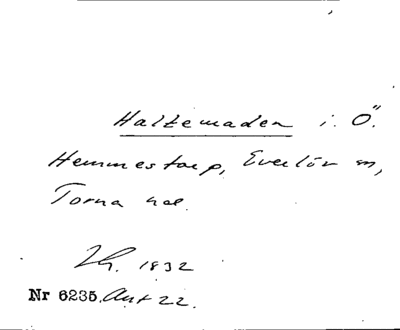 Haltemaden i. Ö.
Hemmestorp, Everlöv sn,
Torna hd.
1832
Nr 6235. Ant 22.